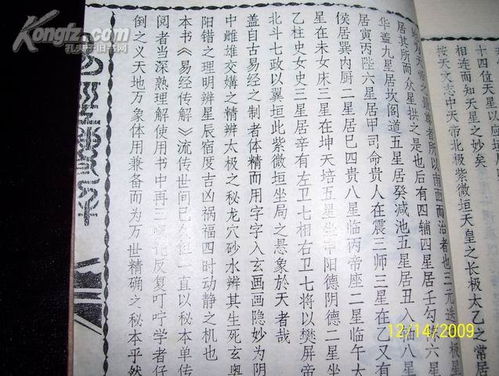 Kongfz.com
孔夫子旧书网
十四位天星以
相连而知天星之妙矣
按天文志中天帝北极紫微垣天皇之长极太乙之常居
所以南面而治者也三元迭极
居其所而众星拱之是也后有四辅四星居壬勾六星
华盖九星居坎阁道五星居癸咸池五星居丑入八星
居寅丙陛六星居甲司命贵人在震三师三星在乙又有
侯居巽内厨二星居巳四贵八星临丙帝座二星临午太
星在未女床三星在坤天培五星坐申阳德阴德二星坐
乙柱史女史三星居辛有左卫七相右卫七将以樊屏帝
北斗七政以翼垣此紫微垣坐局之悬象於天者哉
盖自古易经之制者体精而用字字入玄画画隐妙为阴
中雌雄交媾之精辨太极之秘龙穴砂水辨其生死玄奥
阳错之理明辨星辰宿度吉凶祸福四时动静之机也
本书《易经传解》流传世间已久一直以秘本单传
阅者当深熟理解使用书中再三反复叮咛学者仔
倒之义天地万象体用兼备而为万世精确之秘本乎然
12/14/2009